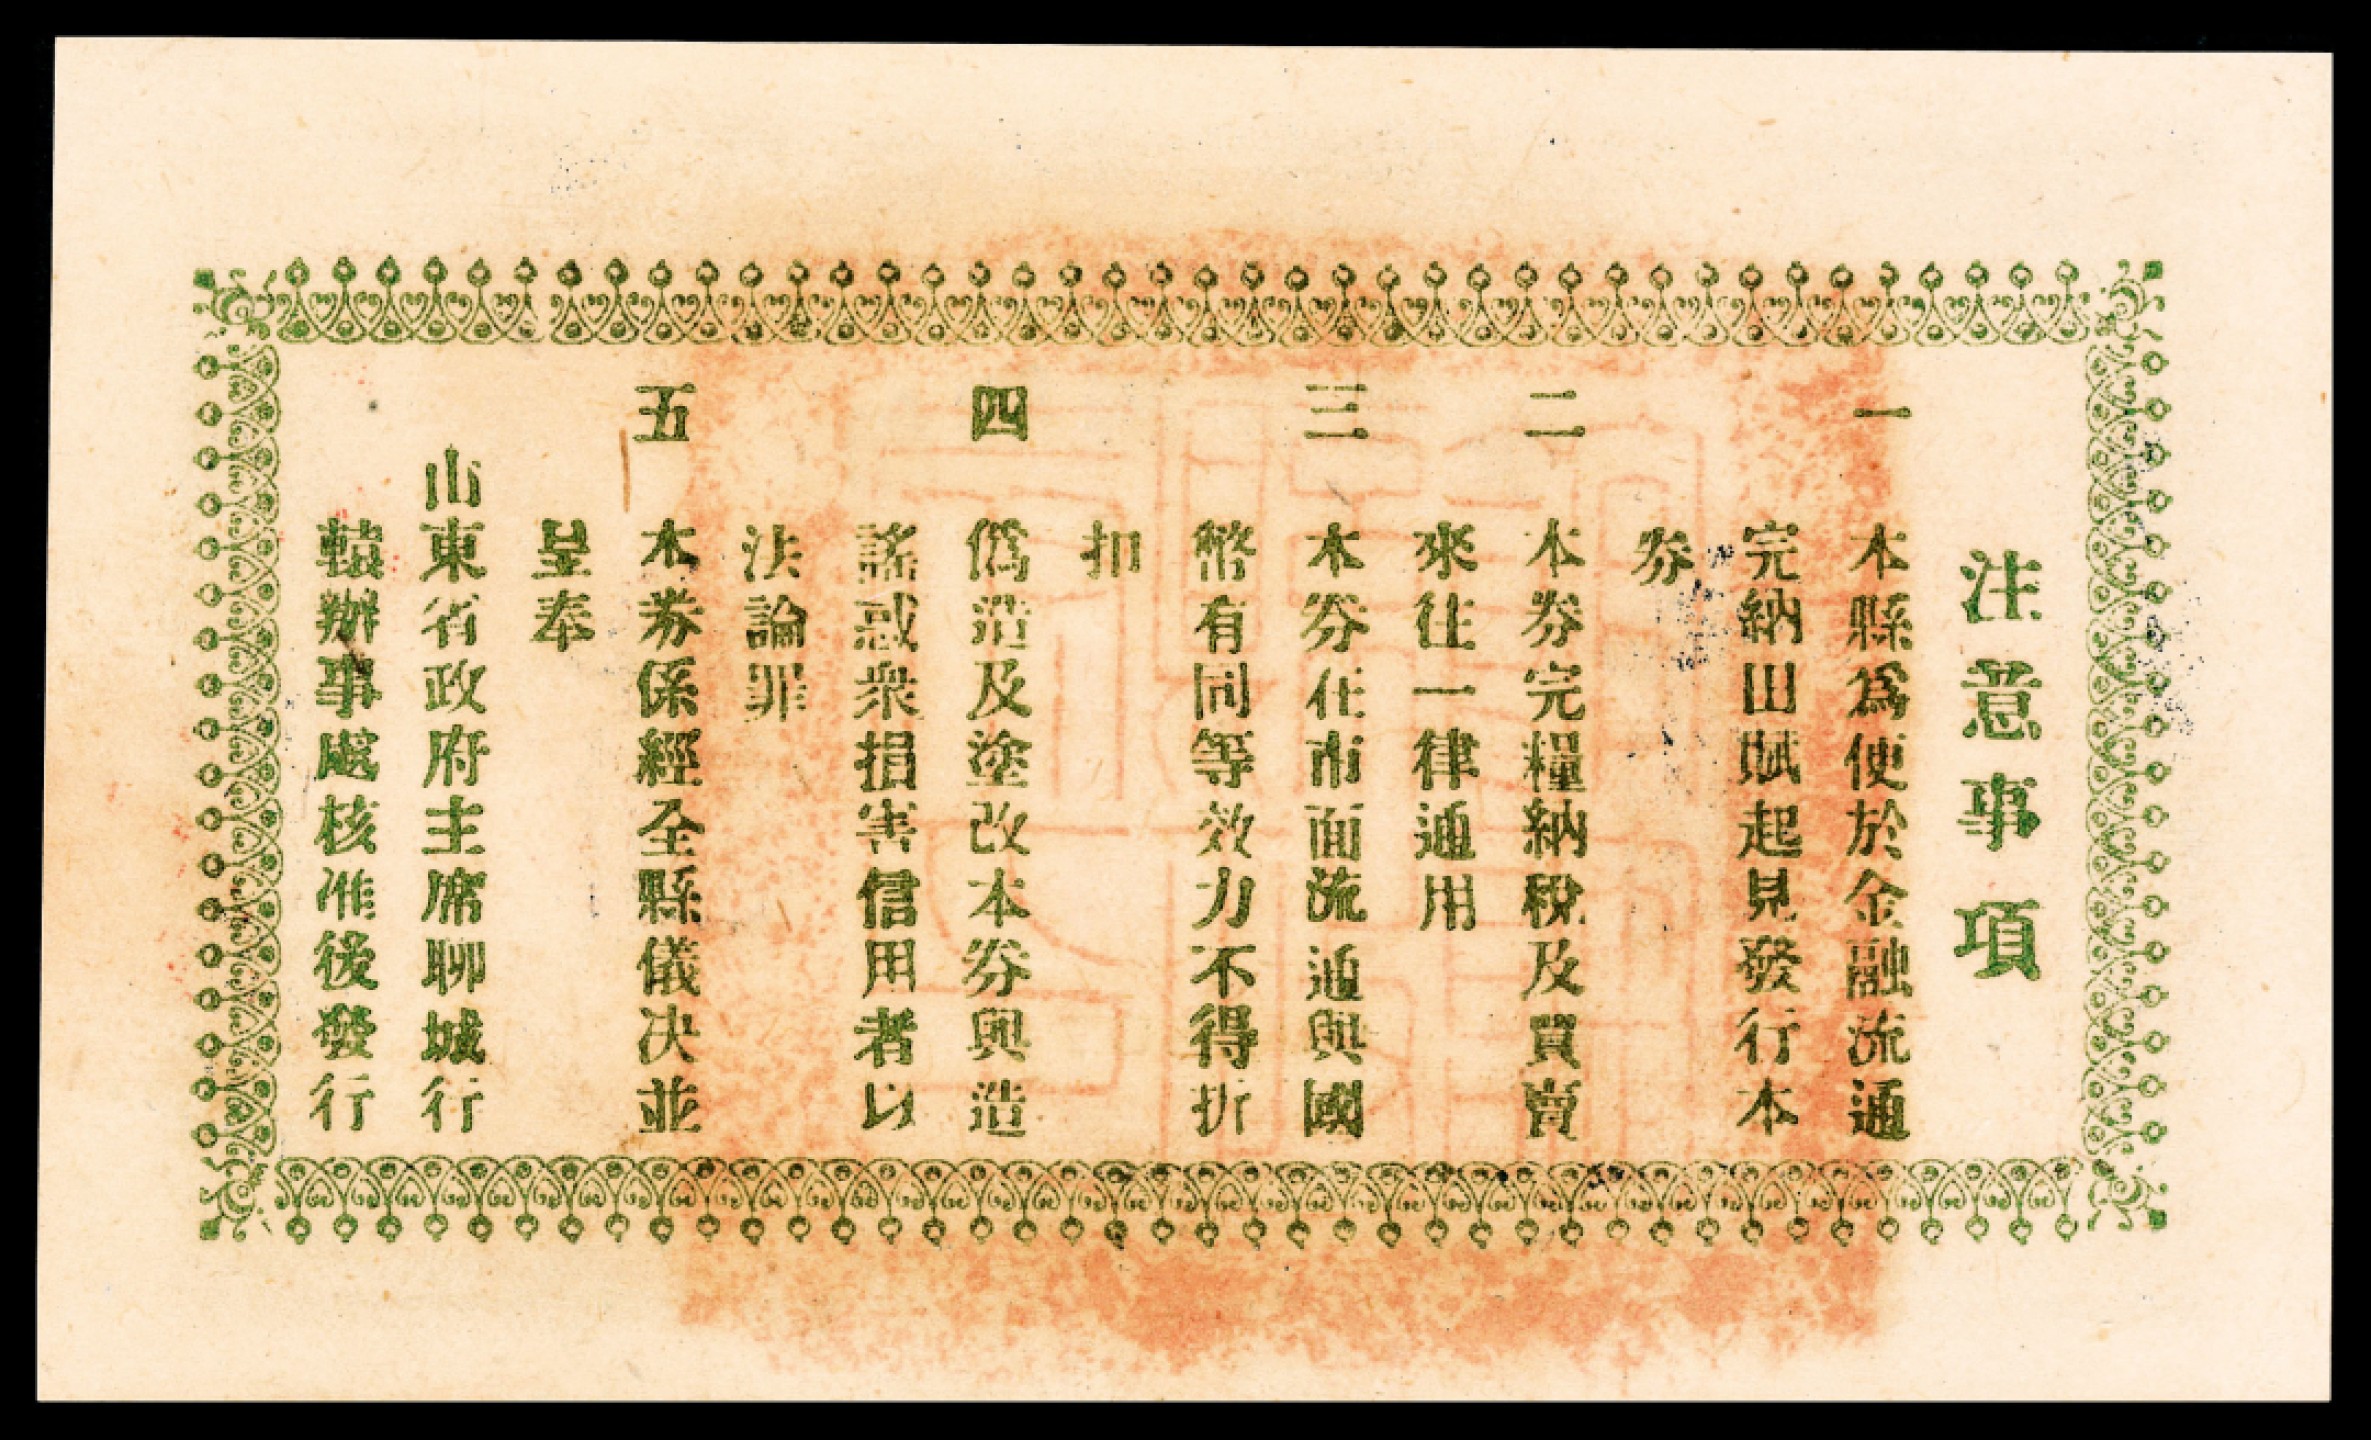 注意事項
一 本縣爲使於金融流通
完納田賦起見發行本
券
二 本券完糧納稅及買賣
來往一律通用
三 本券在市面流通與國
幣有同等效力不得折
扣
四 僞造及塗改本券與造
謠惑衆損害信用者以
法論罪
五 本券係經全縣儀决並
呈奉
山東省政府主席聊城行
轅辦事處核准後發行